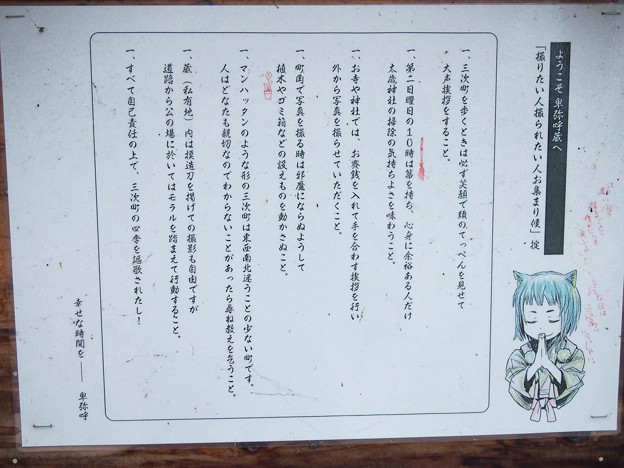 ようこそ 卑弥呼蔵へ
「撮りたい人撮られたい人お集まり候」掟
一、三次町を歩くときは必ず笑顔で頭のてっぺんを見せて
大声挨拶をすること。
一、第二日曜日の10時は箒を持ち、心身に余裕ある人だけ
太歳神社の掃除の気持ちよさを味わうこと。
一、お寺や神社では、お賽銭を入れて手を合わす挨拶を行い
外から写真を撮らせていただくこと。
一、町内で写真を撮る時は邪魔にならぬようして
植木やゴミ箱などの設えものを動かさぬこと。
一、マンハッタンのような形の三次町は東西南北迷うことの少ない町です。
人はどなたも親切なのでわからないことがあったら尋ね教えを乞うこと。
一、蔵（私有地）内は模造刀を掲げての撮影も自由ですが
道路から公の場に於いてはモラルを踏まえて行動すること。
一、すべて自己責任の上で、三次町の四季を謳歌されたし！
幸せな時間を── 卑弥呼